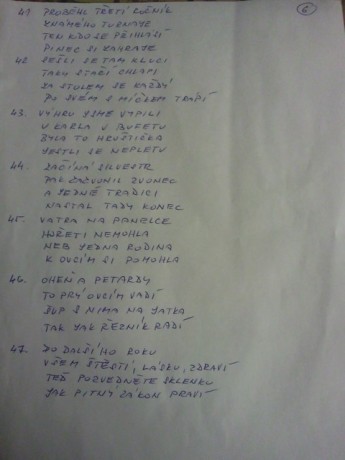 6
41 PROBĚHL TŘETÍ ROČNÍK
ZNÁMÉHO TURNAYE
TEN KDO SE PŘIHLÁSÍ
PINEC SI ZAHRAJE
42 SEŠLI SE TAM KLUCI
TAKY STAŘÍ CHLAPI
ZA STOLEM SE KAŽDÝ
PO SVÉM S MÍČKEM TRÁPÍ
43. VÝHRU JSME VYPILI
U KARLA V BUFETU
BYLA TO HRUŠTIČKA
JESTLI SE NEPLETU
44. ZAČÍNÁ SILVESTR
PAK ZAZVONIL ZVONEC
A JEDNÉ TRADICI
NASTAL TADY KONEC
45. VATRA NA PANELCE
HOŘETI NEMOHLA
NEB JEDNA RODINA
K OVCÍM SI POMOHLA
46. OHEŇ A PETARDY
TO PRÝ OVCÍM VADÍ
ŠUP S NIMA NA JATKA
TAK JAK ŘEZNÍK RADÍ
47. DO DALŠÍHO ROKU
VŠEM ŠTĚSTÍ, LÁSKU, ZDRAVÍ
TEĎ POZVEDNĚTE SKLENKU
JAK PITNÝ ZÁKON PRAVÍ